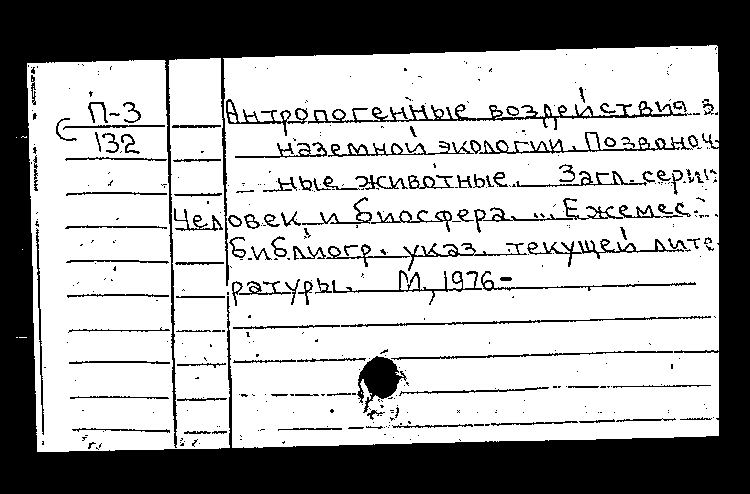 П-3
С
132
Антропогенные воздействия в
наземной экологии. Позвоноч-
ные животные. Загл. серии:
Человек и биосфера. ... Ежемес.
библиогр. указ. текущей лите-
ратуры. М, 1976-